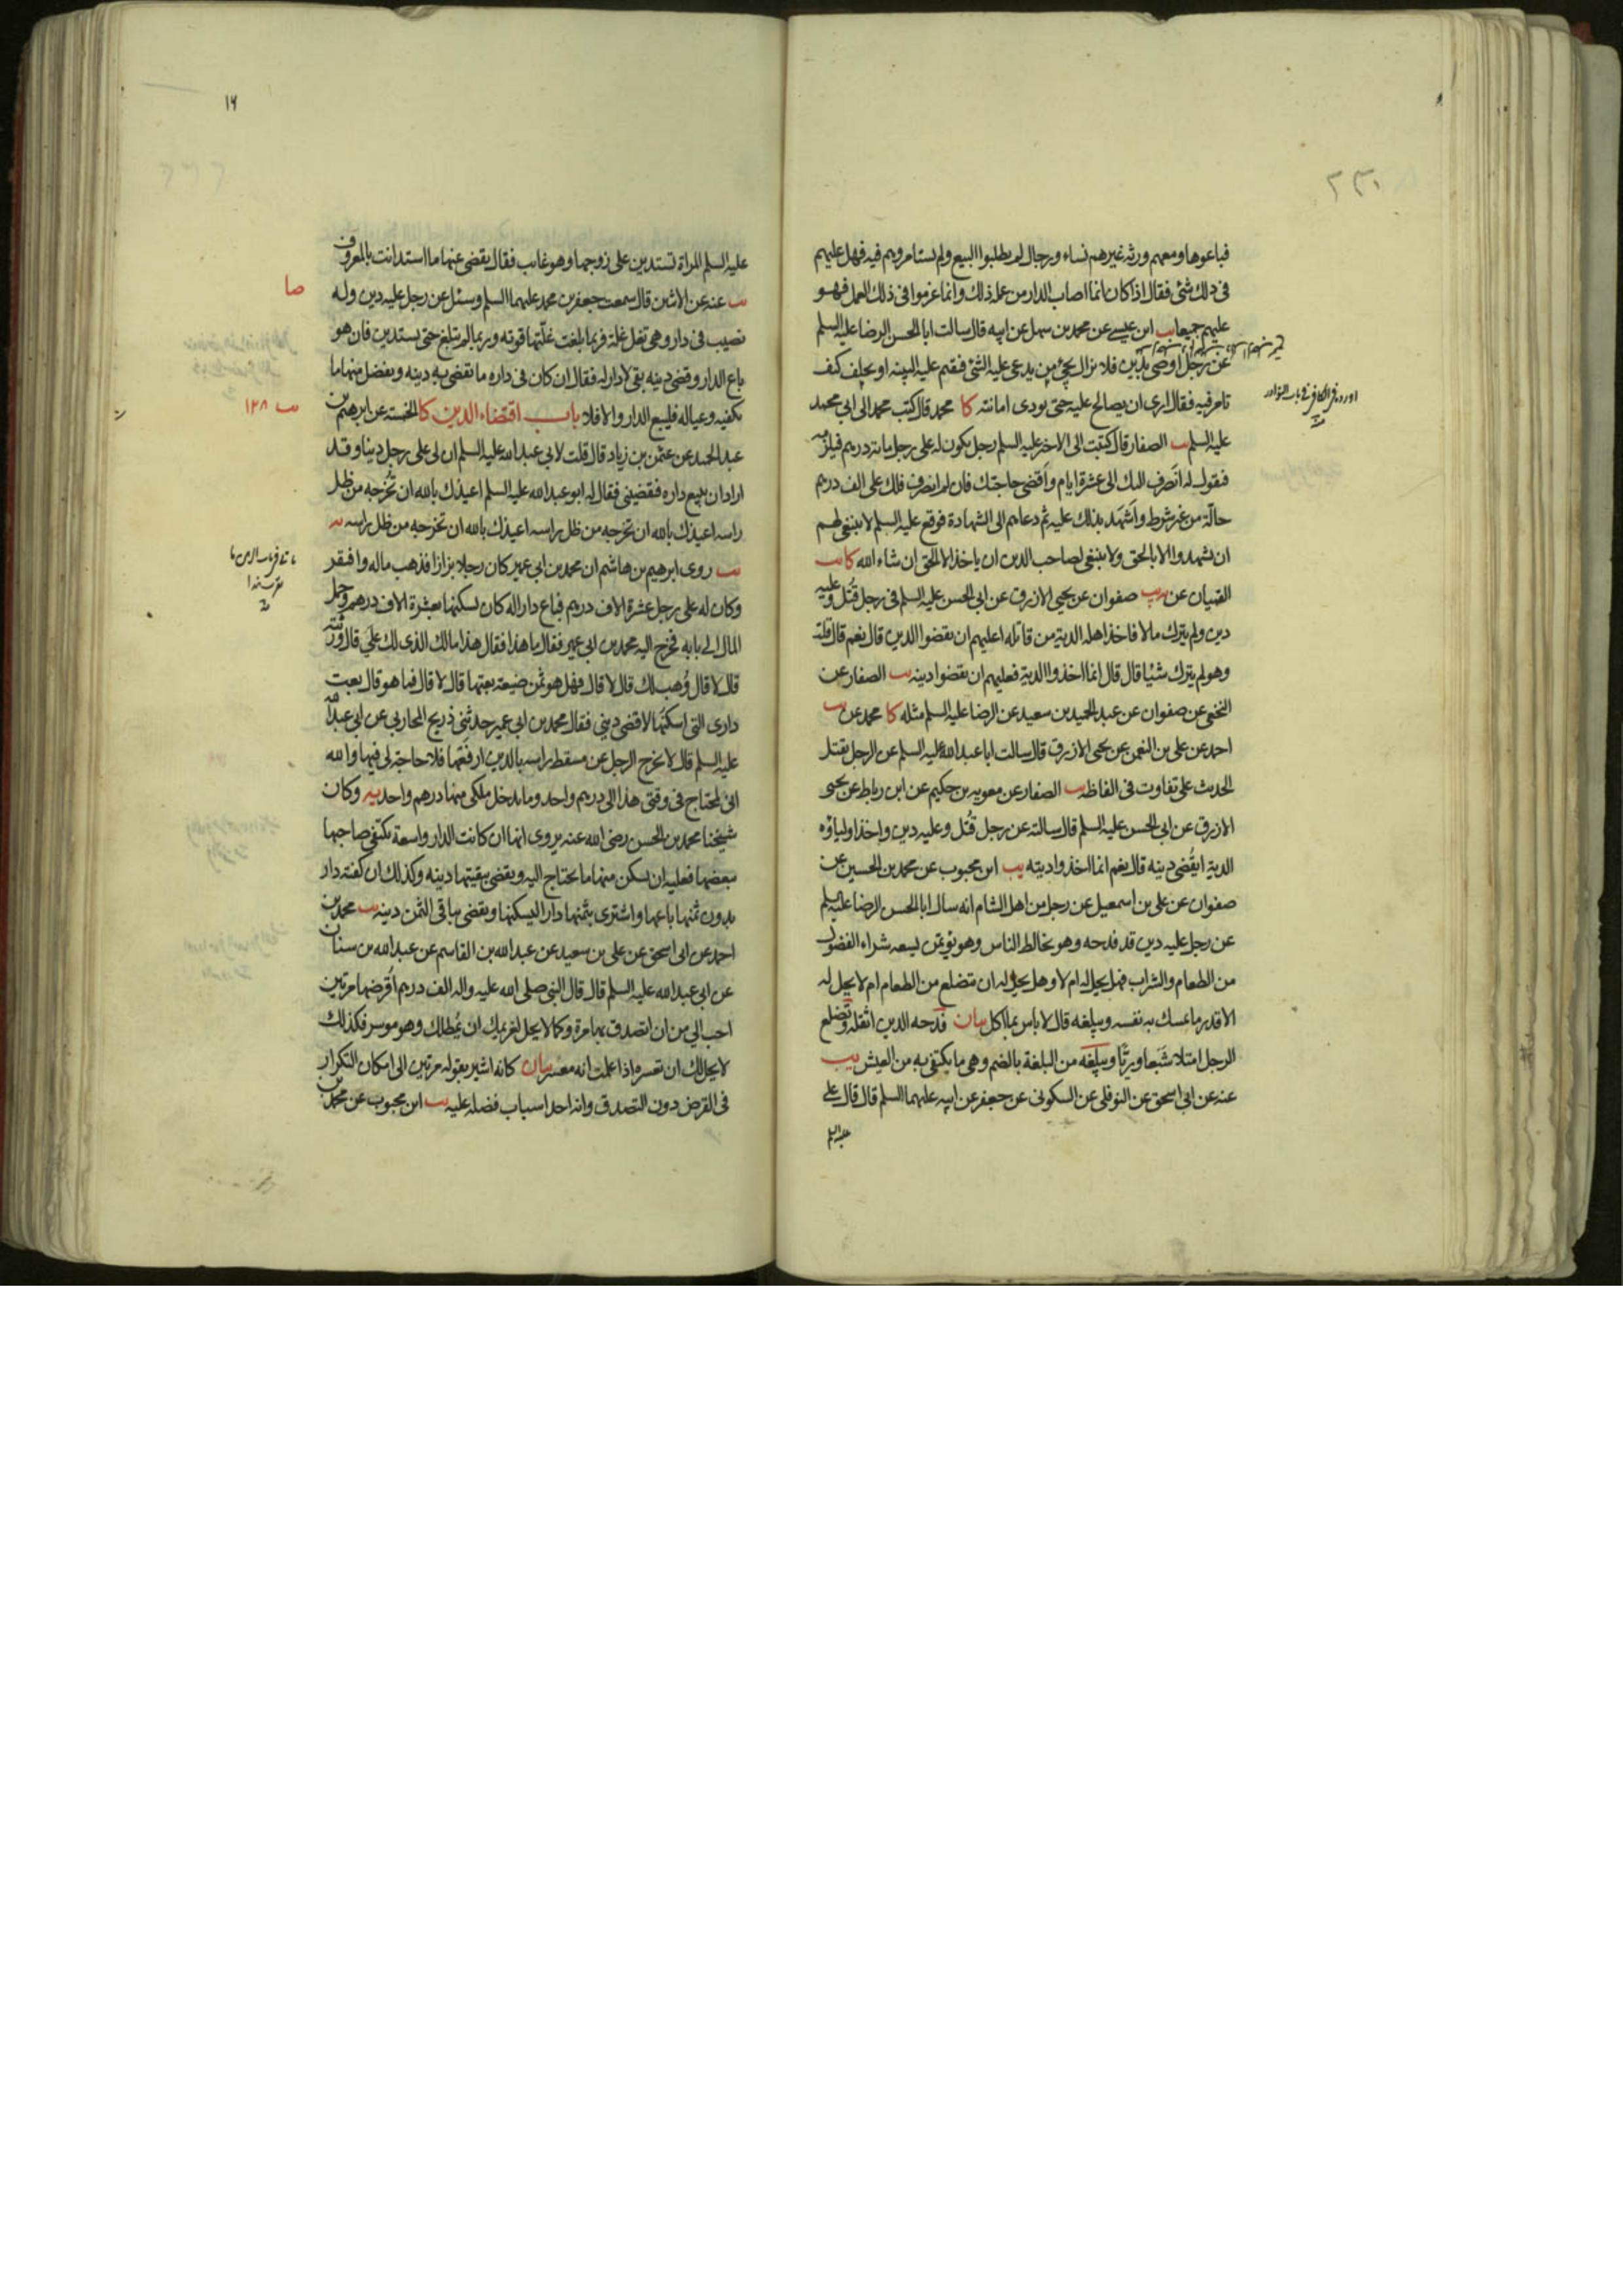 فباعوها ومعهم ورثه غيرهم نساء ورجال لم يطلبوا البيع ولم يستامروهم فيه فهل عليهم
فى ذلك شئ فقال اذا كان انما اصاب الدار من عمله ذلك وانما غرموا فى ذلك العمل فهو
عليهم جميعا يب ابن عيسى عن محمد بن سهل عن ابيه قال سالت ابا الحسن الرضا عليه السلم
عن رجل اوصى بدين فلا يزال يجئ من يدعى عليه الشئ فيقيم عليه البينه او يحلف كيف
تامر فيه فقال ارى ان يصالح عليه حتى يودى امانته كا محمد قال كتب محمد الى ابى محمد
عليه السلم يب الصفار قال كتبت الى الاخير عليه السلم رجل يكون له على رجل مائة درهم فيلزمه
فيقول له انصرف اليك الى عشرة ايام واقضى حاجتك فان لم انصرف فلك على الف درهم
حالّة من غير شرط واشهد بذلك عليه ثم دعاهم الى الشهادة فوقع عليه السلم لا ينبغى لهم
ان يشهدوا الا بالحق ولا ينبغى لصاحب الدين ان ياخذ الا الحق ان شاء الله كا يب
القميان عن يه يب صفوان عن يحيى الازرق عن ابى الحسن عليه السلم فى رجل قُتل وعليه
دين ولم يترك مالا فاخذ اهله الدية من قاتله اعليهم ان يقضوا الدين قال نعم قال قلت
وهو لم يترك شيئا قال قال انما اخذوا الدية فعليهم ان يقضوا دينه يب الصفار عن
النخعى عن صفوان عن عبد الحميد بن سعيد عن الرضا عليه السلم مثله كا محمد عن يب
احمد عن على بن النعمن عن يحيى الازرق قال سالت ابا عبد الله عليه السلم عن الرجل يقتل
الحديث على تفاوت فى الفاظه يب الصفار عن معويه بن حكيم عن ابن رباط عن يحيى
الازرق عن ابى الحسن عليه السلم قال سالته عن رجل قُتل وعليه دين واخذ اولياؤه
الدية ايقضى دينه قال نعم انما اخذوا ديته يب ابن محبوب عن محمد بن الحسين عن
صفوان عن على بن اسمعيل عن رجل من اهل الشام انه سال ابا الحسن الرضا عليه السلم
عن رجل عليه دين قد فدحه وهو يخالط الناس وهو يؤتمن يسعه شراء الفضول
من الطعام والشراب فهل يحل له ام لا وهل يحل له ان يتضلع من الطعام ام لا يحل له
الا قدر ما يمسك به نفسه ويبلغه قال لا باس بما اكل بيان فدحه الدين اثقله وتضلع
الرجل امتلا شبعا وريّا ويبلغه من البلغة بالضم وهى ما يكتفى به من العيش يب
عنه عن ابى اسحق عن النوفلى عن السكونى عن جعفر عن ابيه عليهما السلم قال قال على
عليه السلم
اورده فى الكافى فى باب النوادر
١٦
عليه السلم المراة تستدين على زوجها وهو غائب فقال يقضى عنها ما استدانت بالمعروف
يب عنه عن الاثنين قال سمعت جعفر بن محمد عليهما السلم وسئل عن رجل عليه دين وله
نصيب فى دار وهى تغل غلة فربما بلغت غلتها قوته وربما لم تبلغ حتى يستدين فان هو
باع الدار وقضى دينه بقى لا دار له فقال ان كان فى داره ما يقضى به دينه ويفضل منها ما
يكفيه وعياله فليبع الدار والا فلا باب اقتضاء الدين كا الخمسة عن ابرهيم بن
عبد الحميد عن عثمن بن زياد قال قلت لابى عبد الله عليه السلم ان لى على رجل دينا وقد
اراد ان يبيع داره فيقضينى فقال له ابو عبد الله عليه السلم اعيذك بالله ان تخرجه من ظل
راسه اعيذك بالله ان تخرجه من ظل راسه اعيذك بالله ان تخرجه من ظل راسه يه
يب روى ابرهيم بن هاشم ان محمد بن ابى عمير كان رجلا بزازا فذهب ماله وافتقر
وكان له على رجل عشرة الاف درهم فباع دارا له كان يسكنها بعشرة الاف درهم وحمل
المال الى بابه فخرج اليه محمد بن ابى عمير فقال ما هذا فقال هذا مالك الذى لك علىّ قال ورثته
قال لا قال وُهب لك قال لا قال فهل هو ثمن ضيعة بعتها قال لا قال فما هو قال بعت
دارى التى اسكنها لاقضى دينى فقال محمد بن ابى عمير حدثنى ذريح المحاربى عن ابى عبد الله
عليه السلم قال لا يخرج الرجل عن مسقط راسه بالدين ارفعها فلا حاجة لى فيها والله
انى لمحتاج فى وقتى هذا الى درهم واحد وما يدخل ملكى منها درهم واحد يه وكان
شيخنا محمد بن الحسن رضى الله عنه يروى انها ان كانت الدار واسعة يكتفى صاحبها
ببعضها فعليه ان يسكن منها ما يحتاج اليه ويقضى ببقيتها دينه وكذلك ان كفته دار
بدون ثمنها باعها واشترى بثمنها دارا ليسكنها ويقضى بباقى الثمن دينه يب محمد بن
احمد عن ابى اسحق عن على بن سعيد عن عبد الله بن القاسم عن عبد الله بن سنان
عن ابى عبد الله عليه السلم قال قال النبى صلى الله عليه واله الف درهم اُقرضها مرتين
احب الى من ان اتصدق بها مرة وكما لا يحل لغريمك ان يمطلك وهو موسر فكذلك
لا يحل لك ان تعسره اذا علمت انه معسر بيان كانه اشير بقوله مرتين الى امكان التكرار
فى القرض دون التصدق وانه احد اسباب فضله عليه يب ابن محبوب عن محمد بن
صا
يب ١٢٨